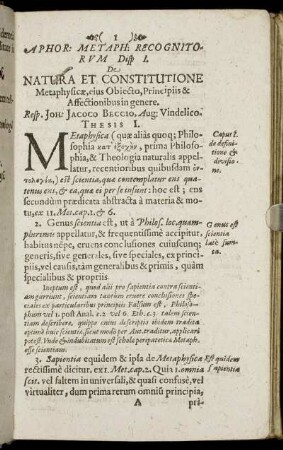 ( 1 )
APHOR: METAPH: RECOGNITO-
RVM Disp I.
De
NATURA ET CONSTITUTIONE
Metaphysicæ, eius Obiecto, Principiis &
Affectionibus in genere.
Resp. JOH: JACOCO BECCIO, Aug: Vindelico.
THESIS I.
MEtaphysica (quæ aliàs quoq; Philo-
sophia κατ' ἐξοχὴν, prima Philoso-
phia, & Theologia naturalis appel-
latur, recentioribus quibusdam
) est scientia, quæ contemplatur ens qua-
tenus ens, & ea, quæ ei per se insunt: hoc est; ens
secundùm prædicata abstracta à materia & mo-
tu, ex 11. Met. cap. 1. & 6.
Caput 1.
de defini-
tione &
divisio-
ne.
2. Genus scientia est, ut à Philos. loc. quàm-
plurimis appellatur, & frequentissimè accipitur,
habitus nẽpe, eruẽs conclusiones cuiuscunq;
generis, sive generales, sive speciales, ex princi-
piis, vel causis, tàm generalibus & primis, quàm
specialibus & propriis.
Genus est
scientia
latè sum-
ta.
Ineptum est, quod alii pro sapientia contra scienti-
am garriunt, scientiam tantùm eruere conclusiones spe-
ciales ex particularibus principiis Falsum est, Philoso-
phum vel 1. post Anal. c. 2 vel 6. Eth. c. 3 talem scien-
tiam describere, quippe cuius descriptio ibidem tradita
optimè huic scientiæ sicut modò per Aut. traditur, applicari
potest. Vnde & indubitatum est scholæ peripateticæ Metaph.
esse scientiam.
3. Sapientia equidem & ipsa de Metaphysica
rectissimè dicitur. ex 1. Met. cap. 2. Quia 1. omnia
scit, vel saltem in universali, & quasi confusè, vel
virtualiter, dum prima rerum omniũ principia,
Est quidem
& sapientia
A pri-